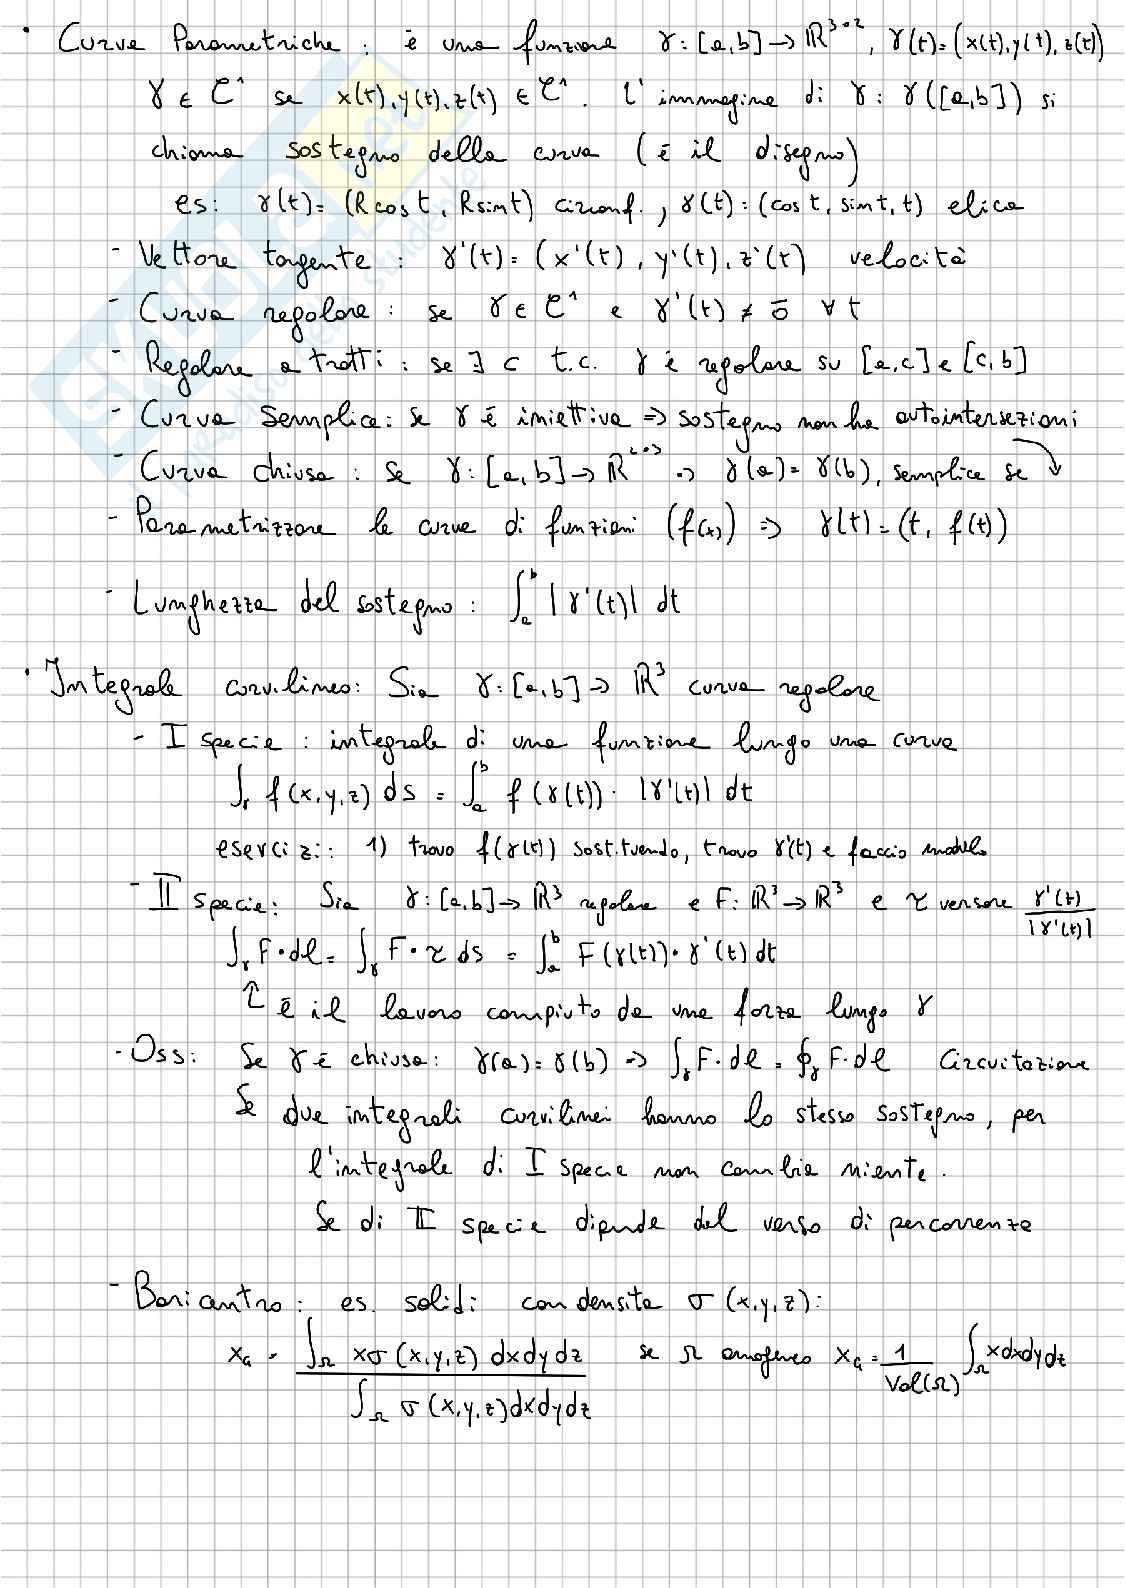 • Curve Parametriche : è una funzione γ : [a,b] → ℝ^{3 o 2}, γ(t) = (x(t), y(t), z(t))
γ ∈ C¹ se x(t), y(t), z(t) ∈ C¹. L'immagine di γ : γ([a,b]) si
chiama sostegno della curva (è il disegno)
es: γ(t) = (R cos t, R sin t) circonf., γ(t) = (cos t, sin t, t) elica
- Vettore tangente : γ'(t) = (x'(t), y'(t), z'(t)) velocità
- Curva regolare : se γ ∈ C¹ e γ'(t) ≠ 0̄ ∀ t
- Regolare a tratti : se ∃ c t.c. γ è regolare su [a,c] e [c,b]
- Curva Semplice : se γ è iniettiva ⇒ sostegno non ha autointersezioni
- Curva chiusa : se γ : [a,b] → ℝ^{2 o 3} ⇒ γ(a) = γ(b), semplice se ↷
- Parametrizzare le curve di funzioni (f(x)) ⇒ γ(t) = (t, f(t))
- Lunghezza del sostegno : ∫_a^b |γ'(t)| dt
• Integrale curvilineo : Sia γ : [a,b] → ℝ³ curva regolare
- I specie : integrale di una funzione lungo una curva
∫_γ f(x,y,z) ds = ∫_a^b f(γ(t)) · |γ'(t)| dt
esercizi : 1) trovo f(γ(t)) sostituendo, trovo γ'(t) e faccio modulo
- II specie : Sia γ : [a,b] → ℝ³ regolare e F : ℝ³ → ℝ³ e τ versore γ'(t)/|γ'(t)|
∫_γ F · dl = ∫_γ F · τ ds = ∫_a^b F(γ(t)) · γ'(t) dt
↑ è il lavoro compiuto da una forza lungo γ
- Oss : Se γ è chiusa : γ(a) = γ(b) ⇒ ∫_γ F · dl = ∮_γ F · dl Circuitazione
Se due integrali curvilinei hanno lo stesso sostegno, per
l'integrale di I specie non cambia niente.
Se di II specie dipende dal verso di percorrenza
- Baricentro : es. solidi con densità σ(x,y,z) :
x_G = ∫_Ω xσ(x,y,z) dxdydz / ∫_Ω σ(x,y,z) dxdydz se Ω omogeneo x_G = 1/Vol(Ω) ∫_Ω x dxdydz